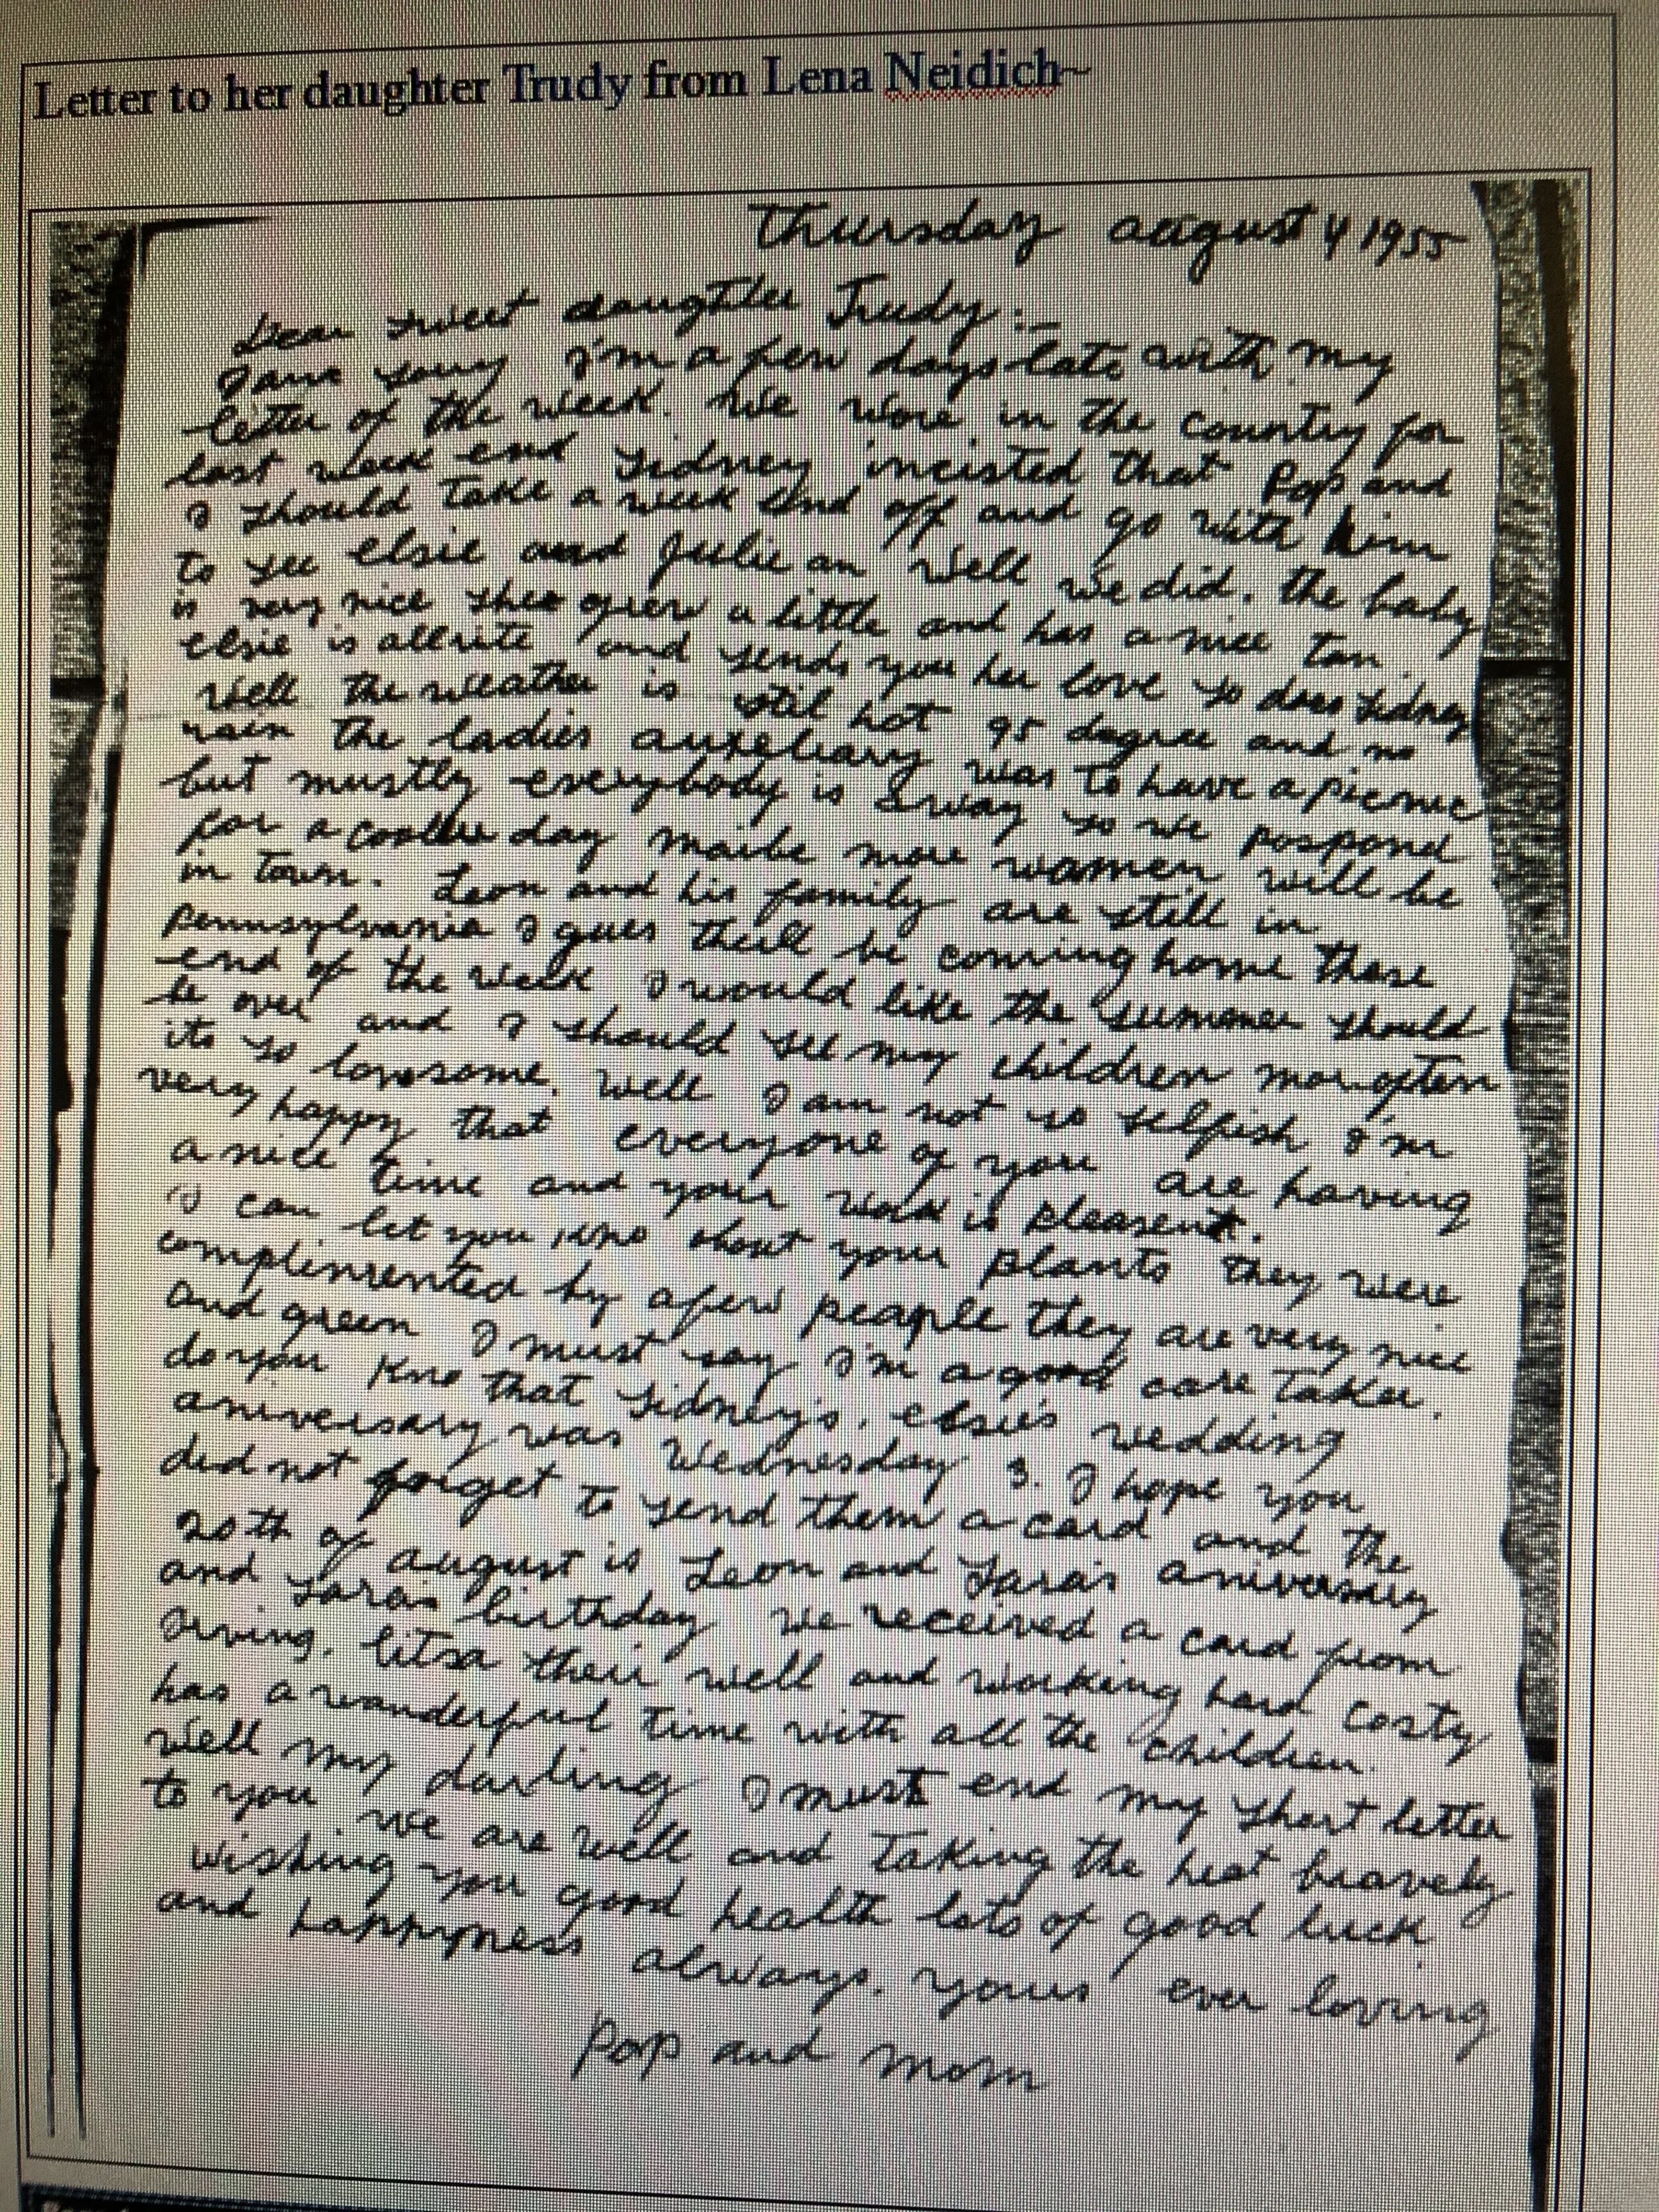 Letter to her daughter Trudy from Lena Neidich~
Thursday august 4 1955
Dear sweet daughter Trudy:-
I am sorry I'm a few days late with my
letter of the week. We were in the country for
last week end Sidney incisted that Pop and
I should take a week end off and go with him
to see elsie and Julie an well we did. the baby
is very nice shee grew a little and has a nice tan
elsie is allrite and sends you her love so does Sidney
well the weather is stil hot 95 degree and no
rain the ladies auxeliary was to have a picnic
but mustly everybody is away so we pospond
for a cooller day maibe more women will be
in town. Leon and his family are still in
Pennsylvania I gues theill be coming home there
end of the week I would like the summer should
be over and I should see my children more often
its so lonesome. well I am not so selfish I'm
very happy that everyone of you are having
a nice time and your work is pleasent.
I can let you kno about your plants they were
complimented by a few peaple they are very nice
and green I must say I'm a good care taker.
do you kno that Sidney's, elsie's wedding
aniversary was Wednesday 3. I hope you
did not forget to send them a card and the
20th of august is Leon and Sara's aniversary
and Sara's birthday we received a card from
Irving, litsa their well and working hard Costy
has a wanderful time with all the children.
well my darling I must end my short letter
to you we are well and taking the heat bravely
wishing you good health lots of good luck
and happyness always. yours ever loving
Pop and Mom